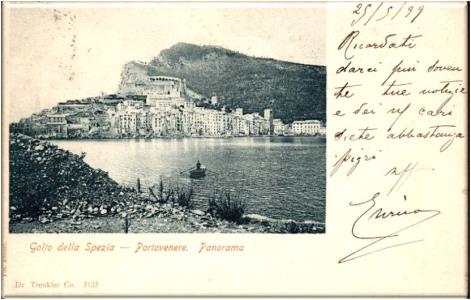 25/5/99
Ricordati
darci più soven
te tue notizie
e dei cari
abbastanza
pigri
Enrico
Golfo della Spezia — Portovenere. Panorama
Dr Trenkler Co. 3135